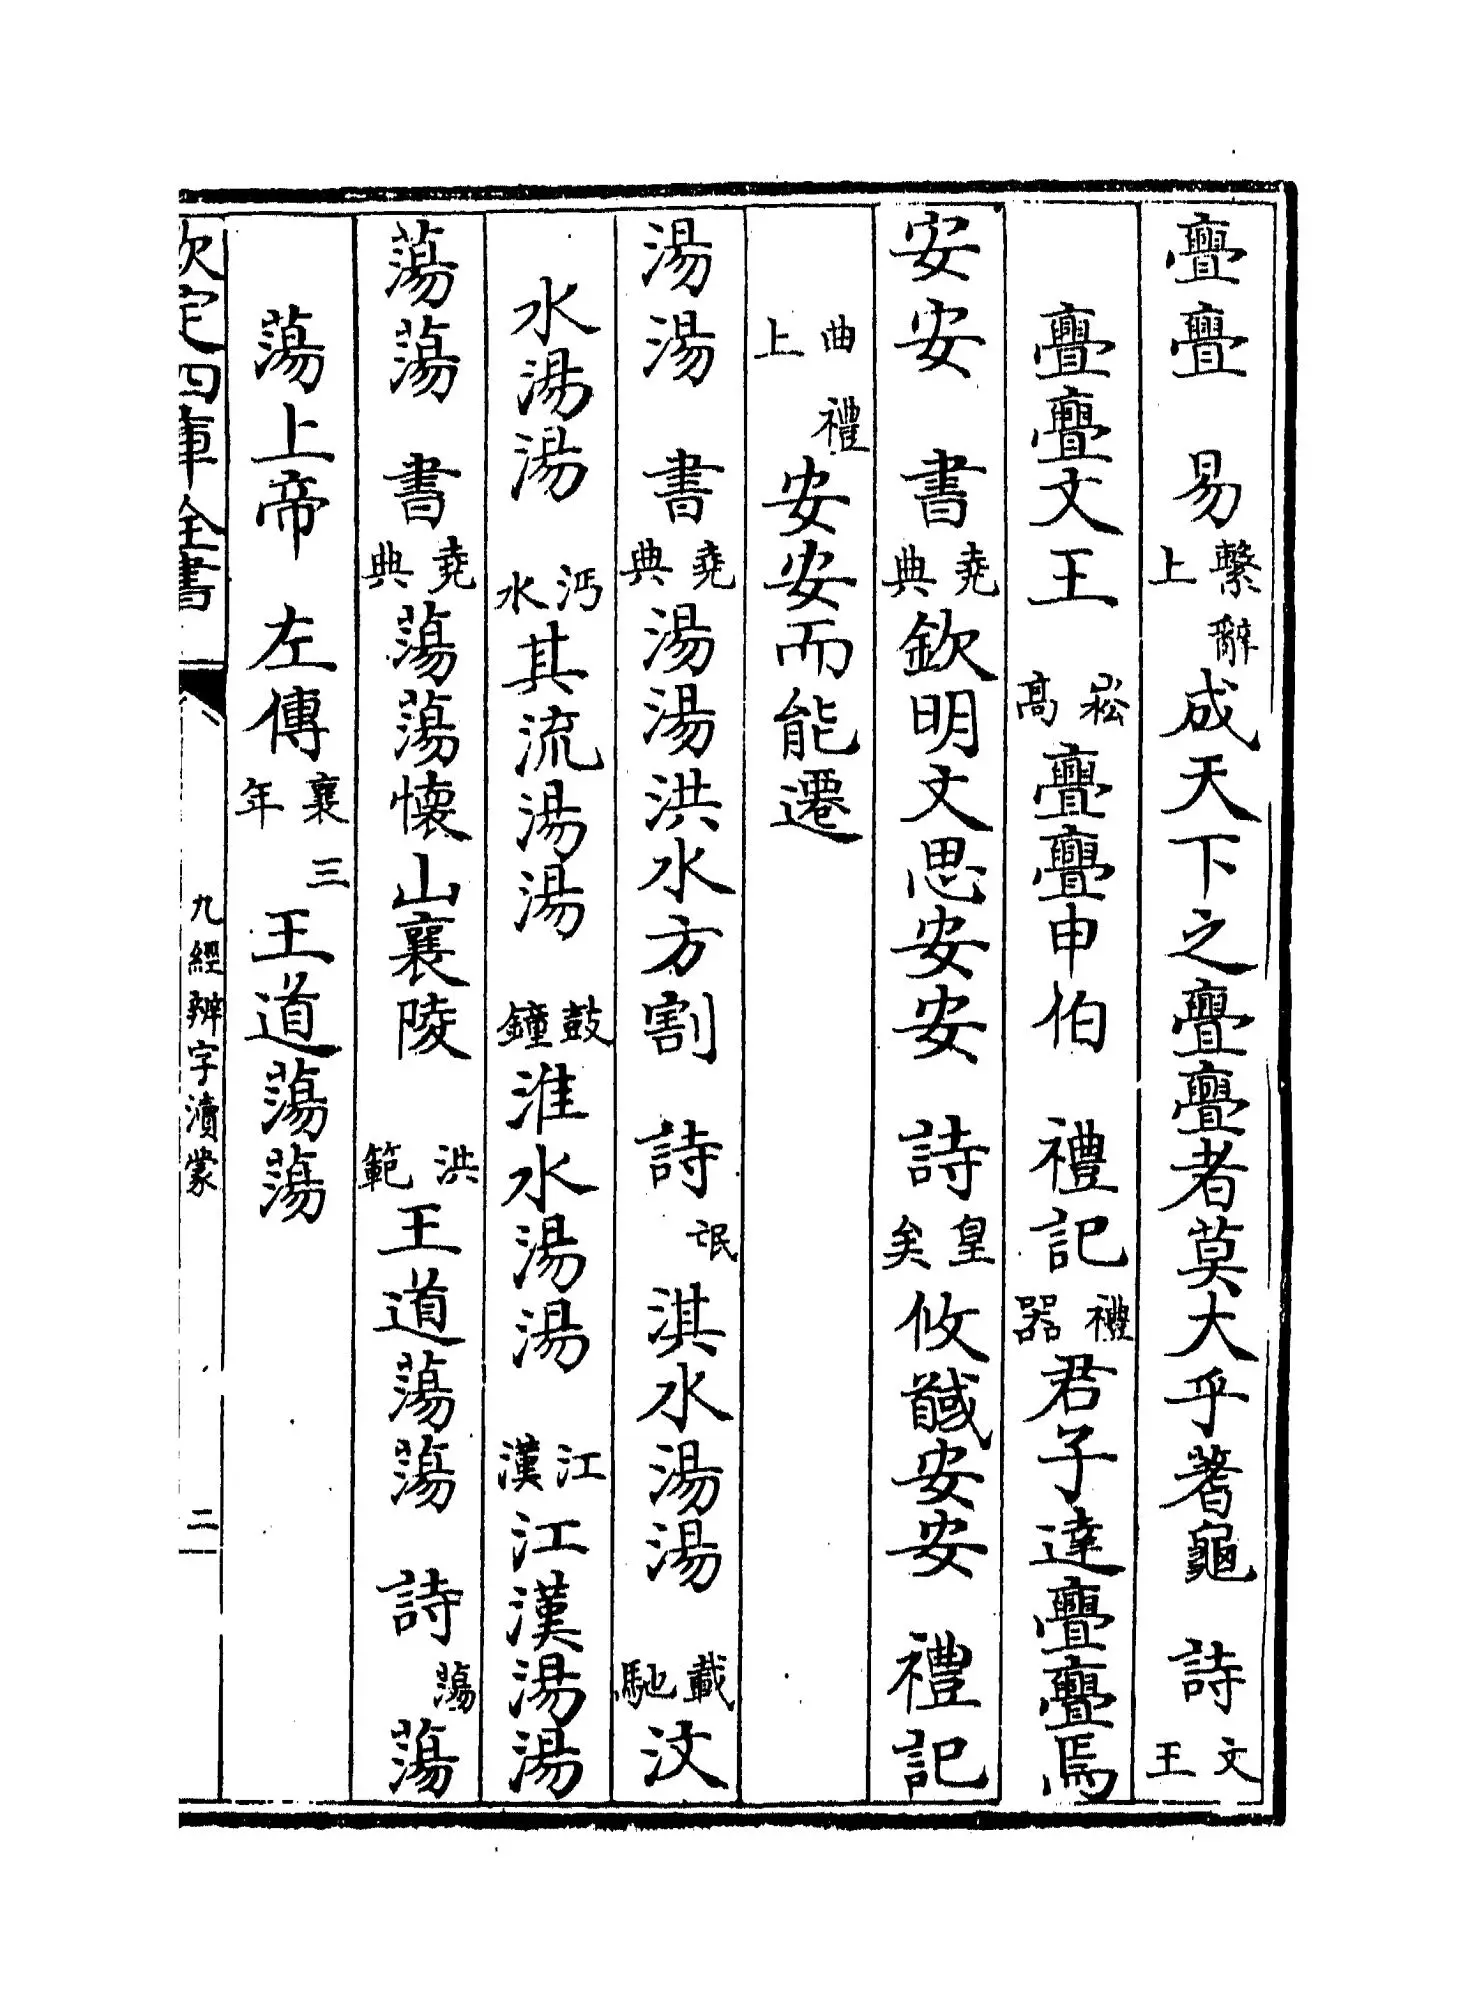 亹亹 易繫辭上成天下之亹亹者莫大乎蓍龜 詩文王
亹亹文王 崧高亹亹申伯 禮記禮器君子達亹亹焉
安安 書堯典欽明文思安安 詩皇矣攸馘安安 禮記
曲禮上安安而能遷
湯湯 書堯典湯湯洪水方割 詩氓淇水湯湯 載馳汶
水湯湯 沔水其流湯湯 鼓鐘淮水湯湯 江漢江漢湯湯
蕩蕩 書堯典蕩蕩懷山襄陵 洪範王道蕩蕩 詩蕩蕩
蕩上帝 左傳襄三年王道蕩蕩
欽定四庫全書 九經辨字瀆蒙 二